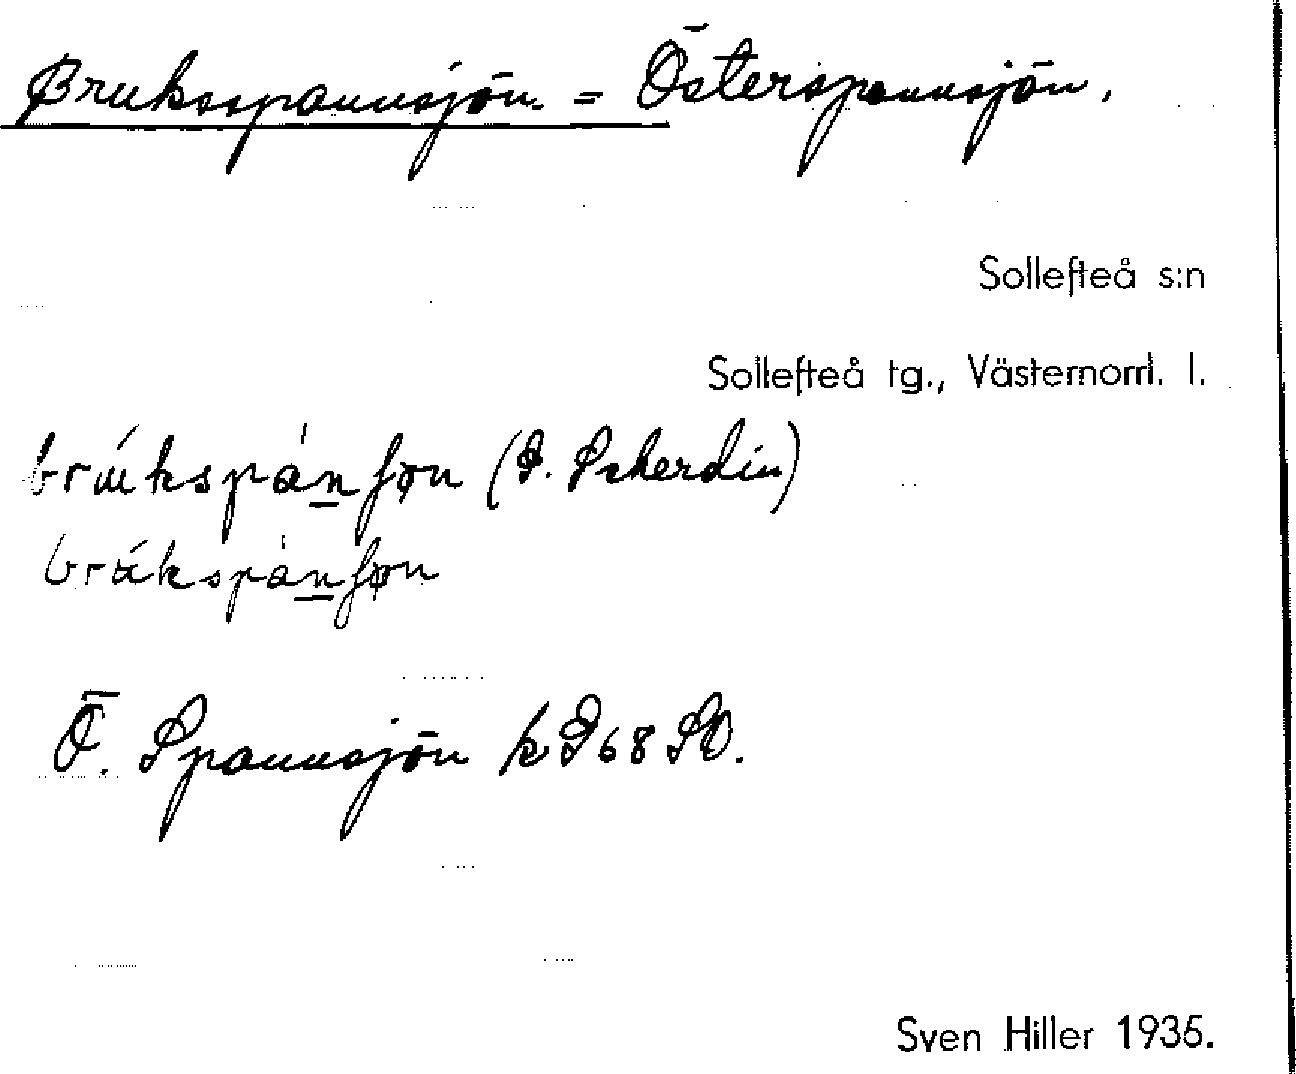 Bruksspannsjön. = Österspannsjön.
Sollefteå s:n
Sollefteå tg., Västernorrl. l.
brúkspànʃøn (P. Pckerdin)
brúkspànʃøn
Ö. Spannsjön k 968 SO.
Sven Hiller 1935.